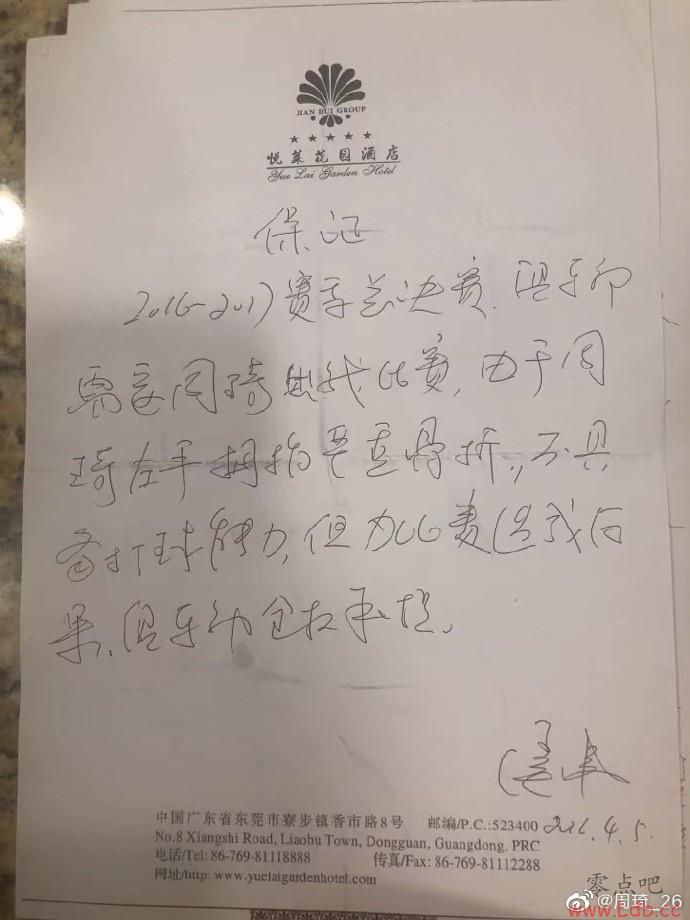 JIAN HUI GROUP
★ ★ ★ ★ ★
悦莱花园酒店
Yue Lai Garden Hotel
保证
2016-2017赛季总决赛,俱乐部
需要周琦出战比赛,由于周
琦左手拇指严重骨折,不具
备打球能力,但为比赛造成后
果,俱乐部全权承担。
2016.4.5.
中国广东省东莞市寮步镇香市路8号 邮编/P.C.:523400
No.8 Xiangshi Road, Liaobu Town, Dongguan, Guangdong, PRC
电话/Tel: 86-769-81118888 传真/Fax: 86-769-81112288
网址/http: www.yuelaigardenhotel.com
零点吧
@周琦_26
www.Ldb.cc